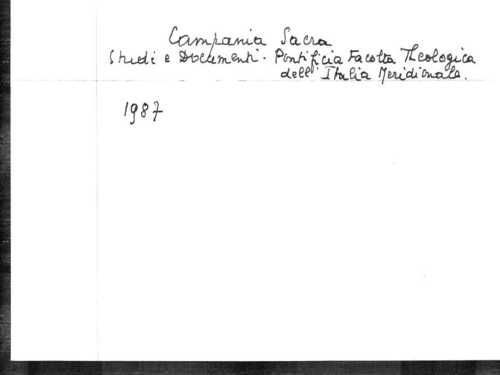 Campania Sacra
Studi e Documenti. Pontificia Facolta Theologica
dell' Italia Meridionale.
1987